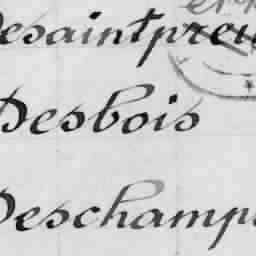 Desaintpreu
Desbois
Deschamp